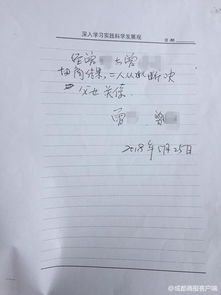 深入学习实践科学发展观
经曾 与曾
协商结果,二人从此断决
父女关系.
曾 曾
2018年5月25日
@成都商报客户端